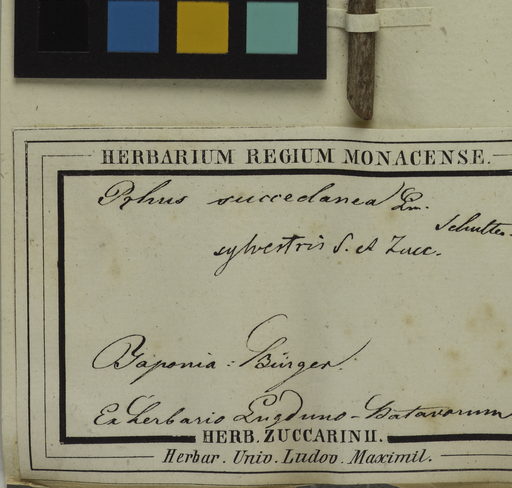 HERBARIUM REGIUM MONACENSE.
Rhus succedanea Lin.
Schultes.
sylvestris S. et Zucc.
Japonia: Bürger.
Ex herbario Lugduno-Batavorum
HERB. ZUCCARINII.
Herbar. Univ. Ludov. Maximil.